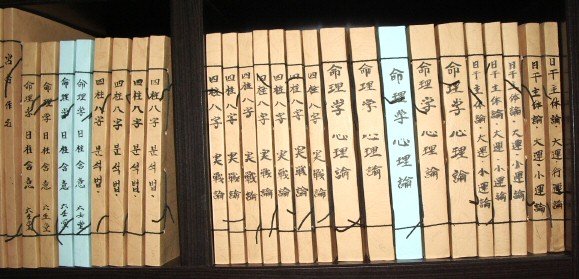 命理学 日柱含息
命理学 日柱含息
命理学 日柱含息
命理学 日柱含息
四柱八字 분석법.
四柱八字 분석법.
四柱八字 분석법.
四柱八字 분석법.
四柱八字 実戦論
四柱八字 実戦論
四柱八字 実戦論
四柱八字 実戦論
四柱八字 実戦論
四柱八字 実戦論
四柱八字 実戦論
命理学 心理論
命理学 心理論
命理学 心理論
命理学 心理論
命理学 心理論
日干主体論·大運·小運論
日干主体論·大運·小運論
日干主体論·大運·小運論
日干主体論·大運·小運論
日干主体論·大運行運論